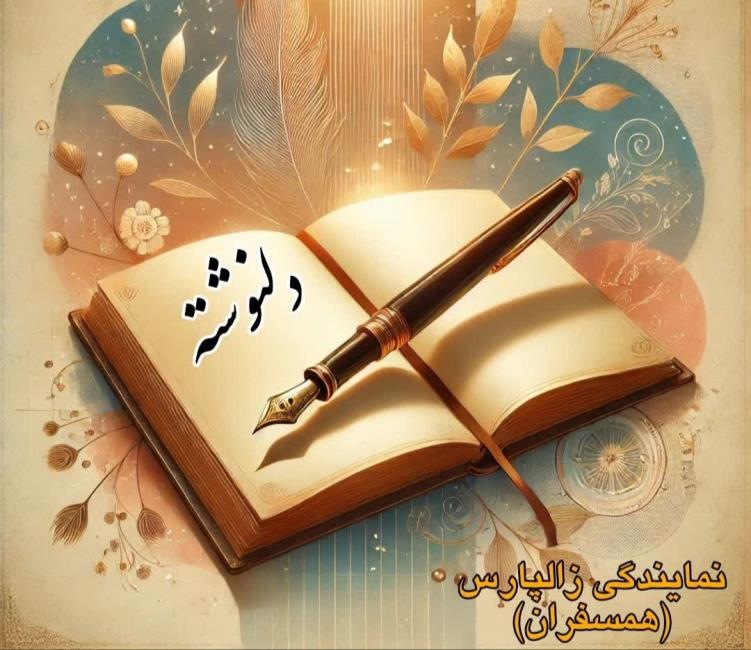 دلنوشته
نمایندگی زالپارس
(همسفران)